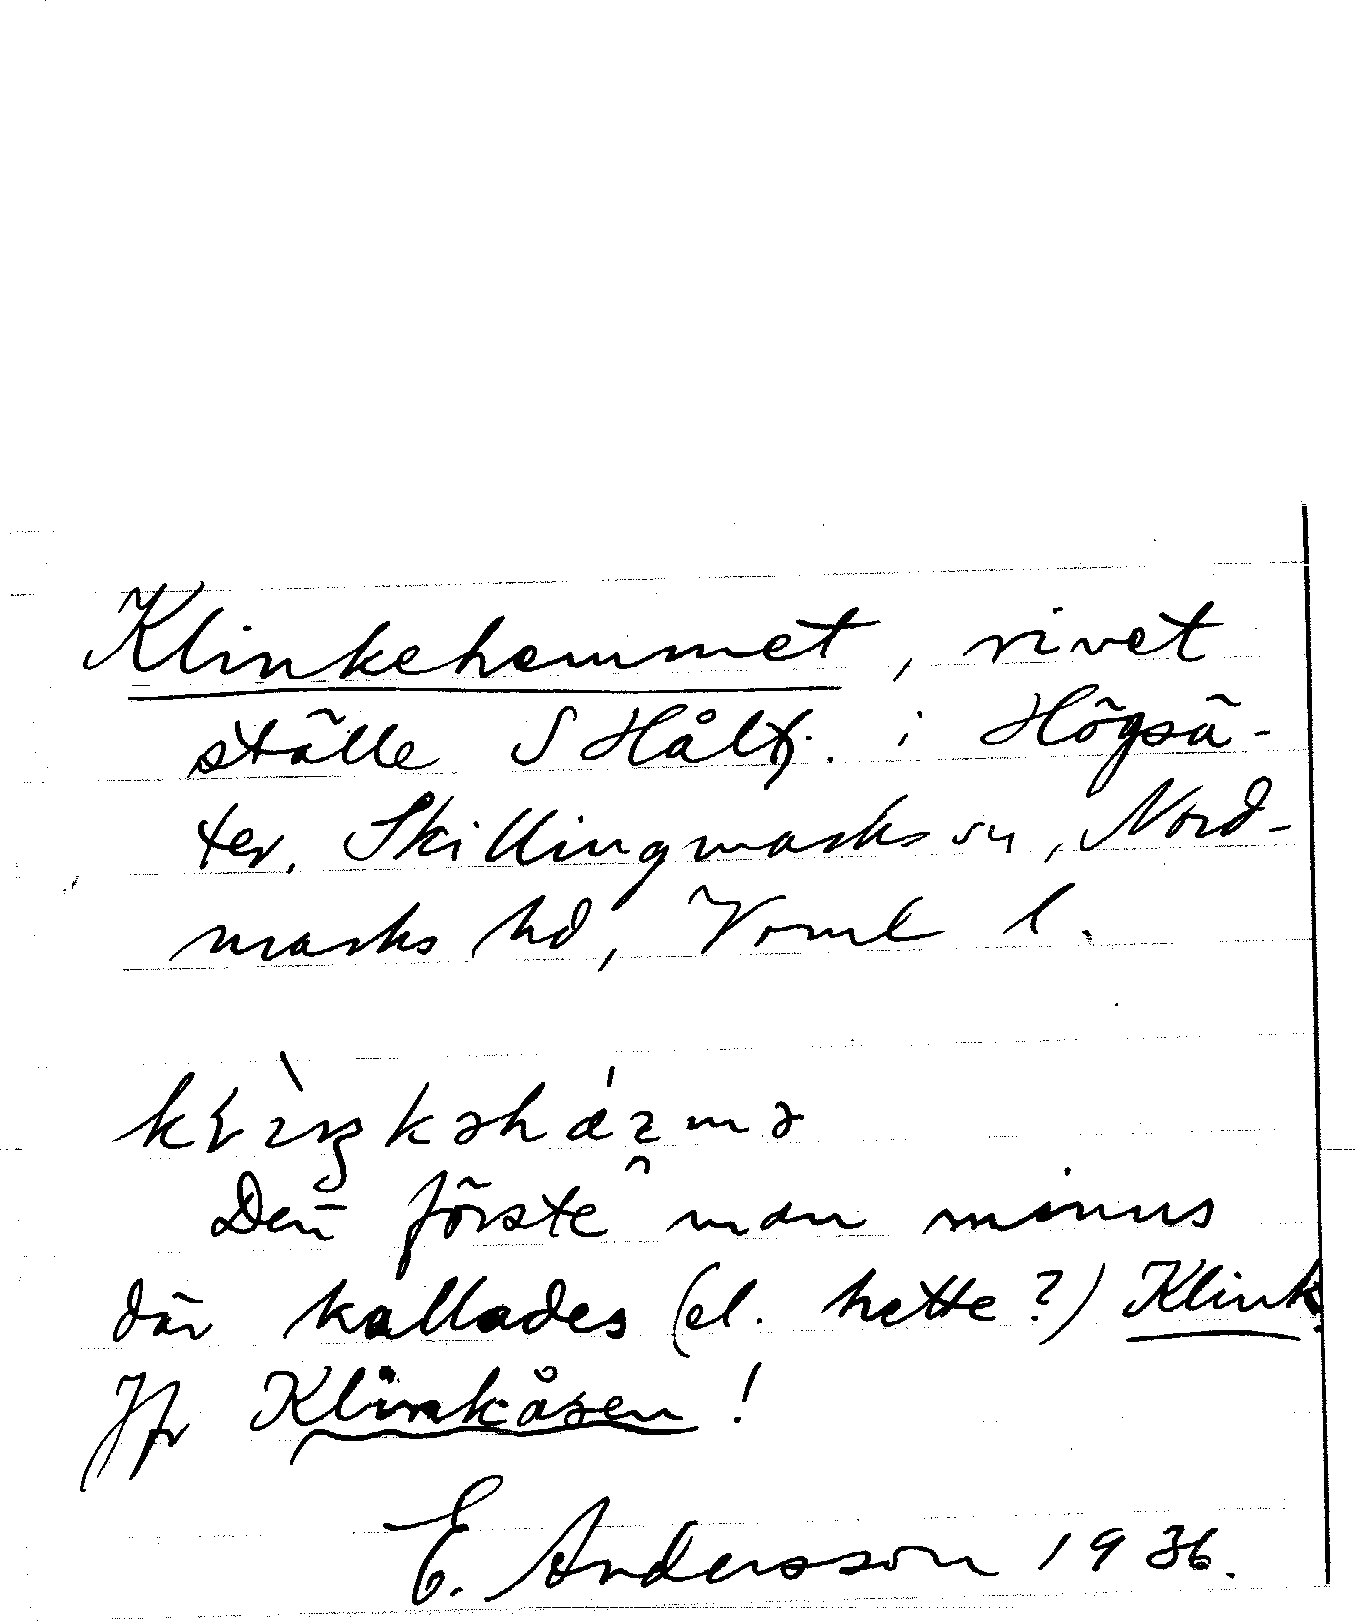 Klinkehemmet, rivet
ställe S Hålt. i Högsä-
ter. Skillingmarks sn, Nord-
marks hd, Vrml l.
Den förste man minns
där kallades (el. hette?) Klink.
Jfr Klinkåsen!
E. Andersson 1936.